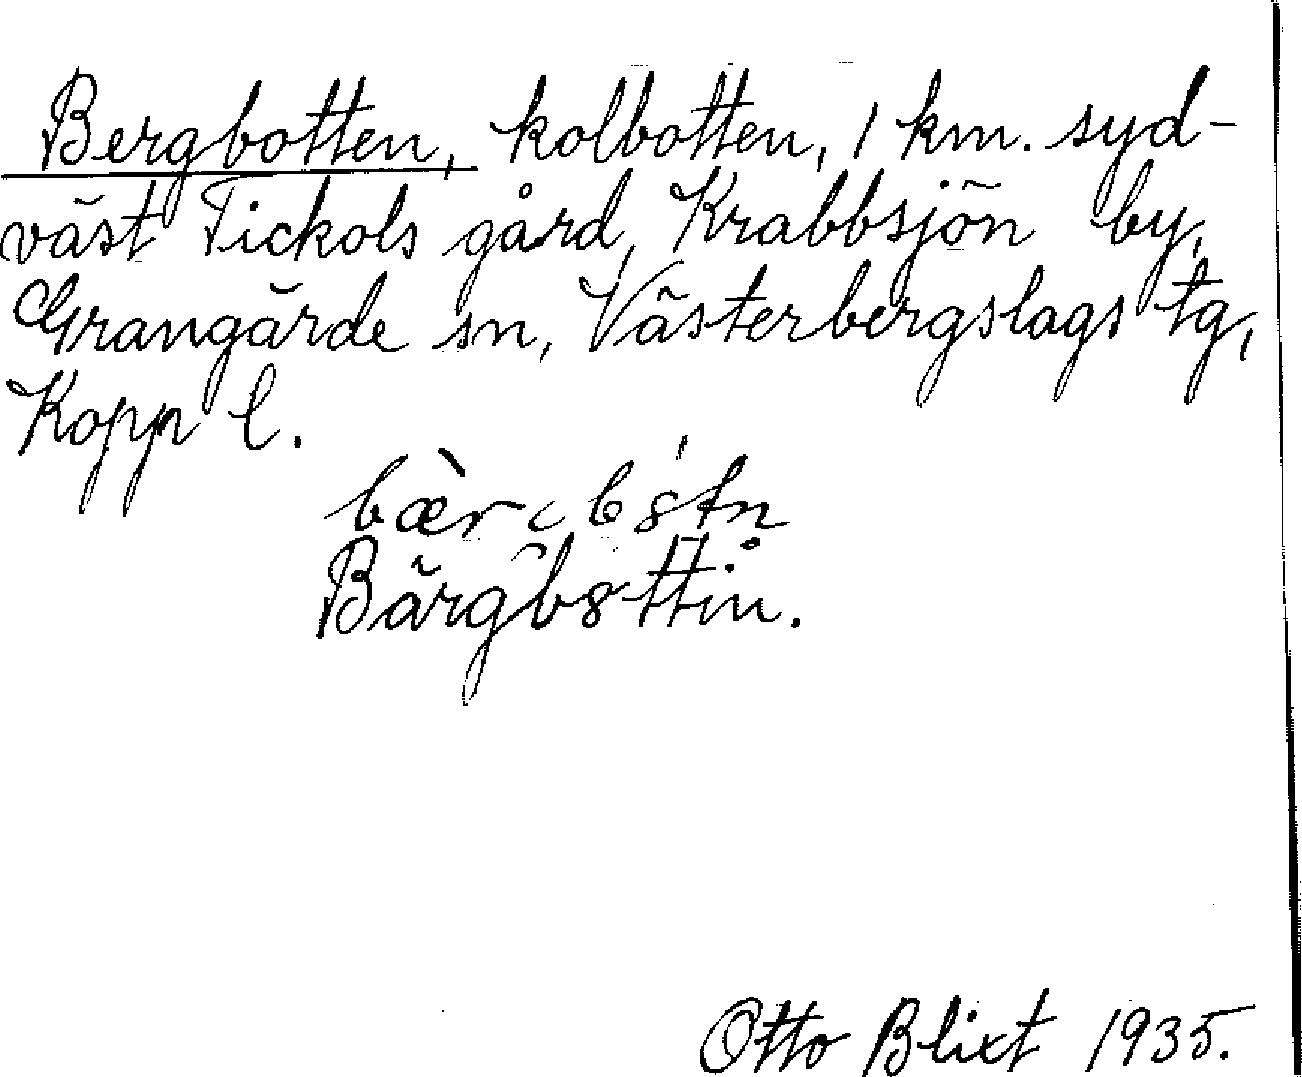 Bergbotten, kolbotten, 1 km. syd-
väst Tickols gård, Krabbsjön by,
Grangärde sn, Västerbergslags tg,
Kopp l.
Otto Blixt 1935.